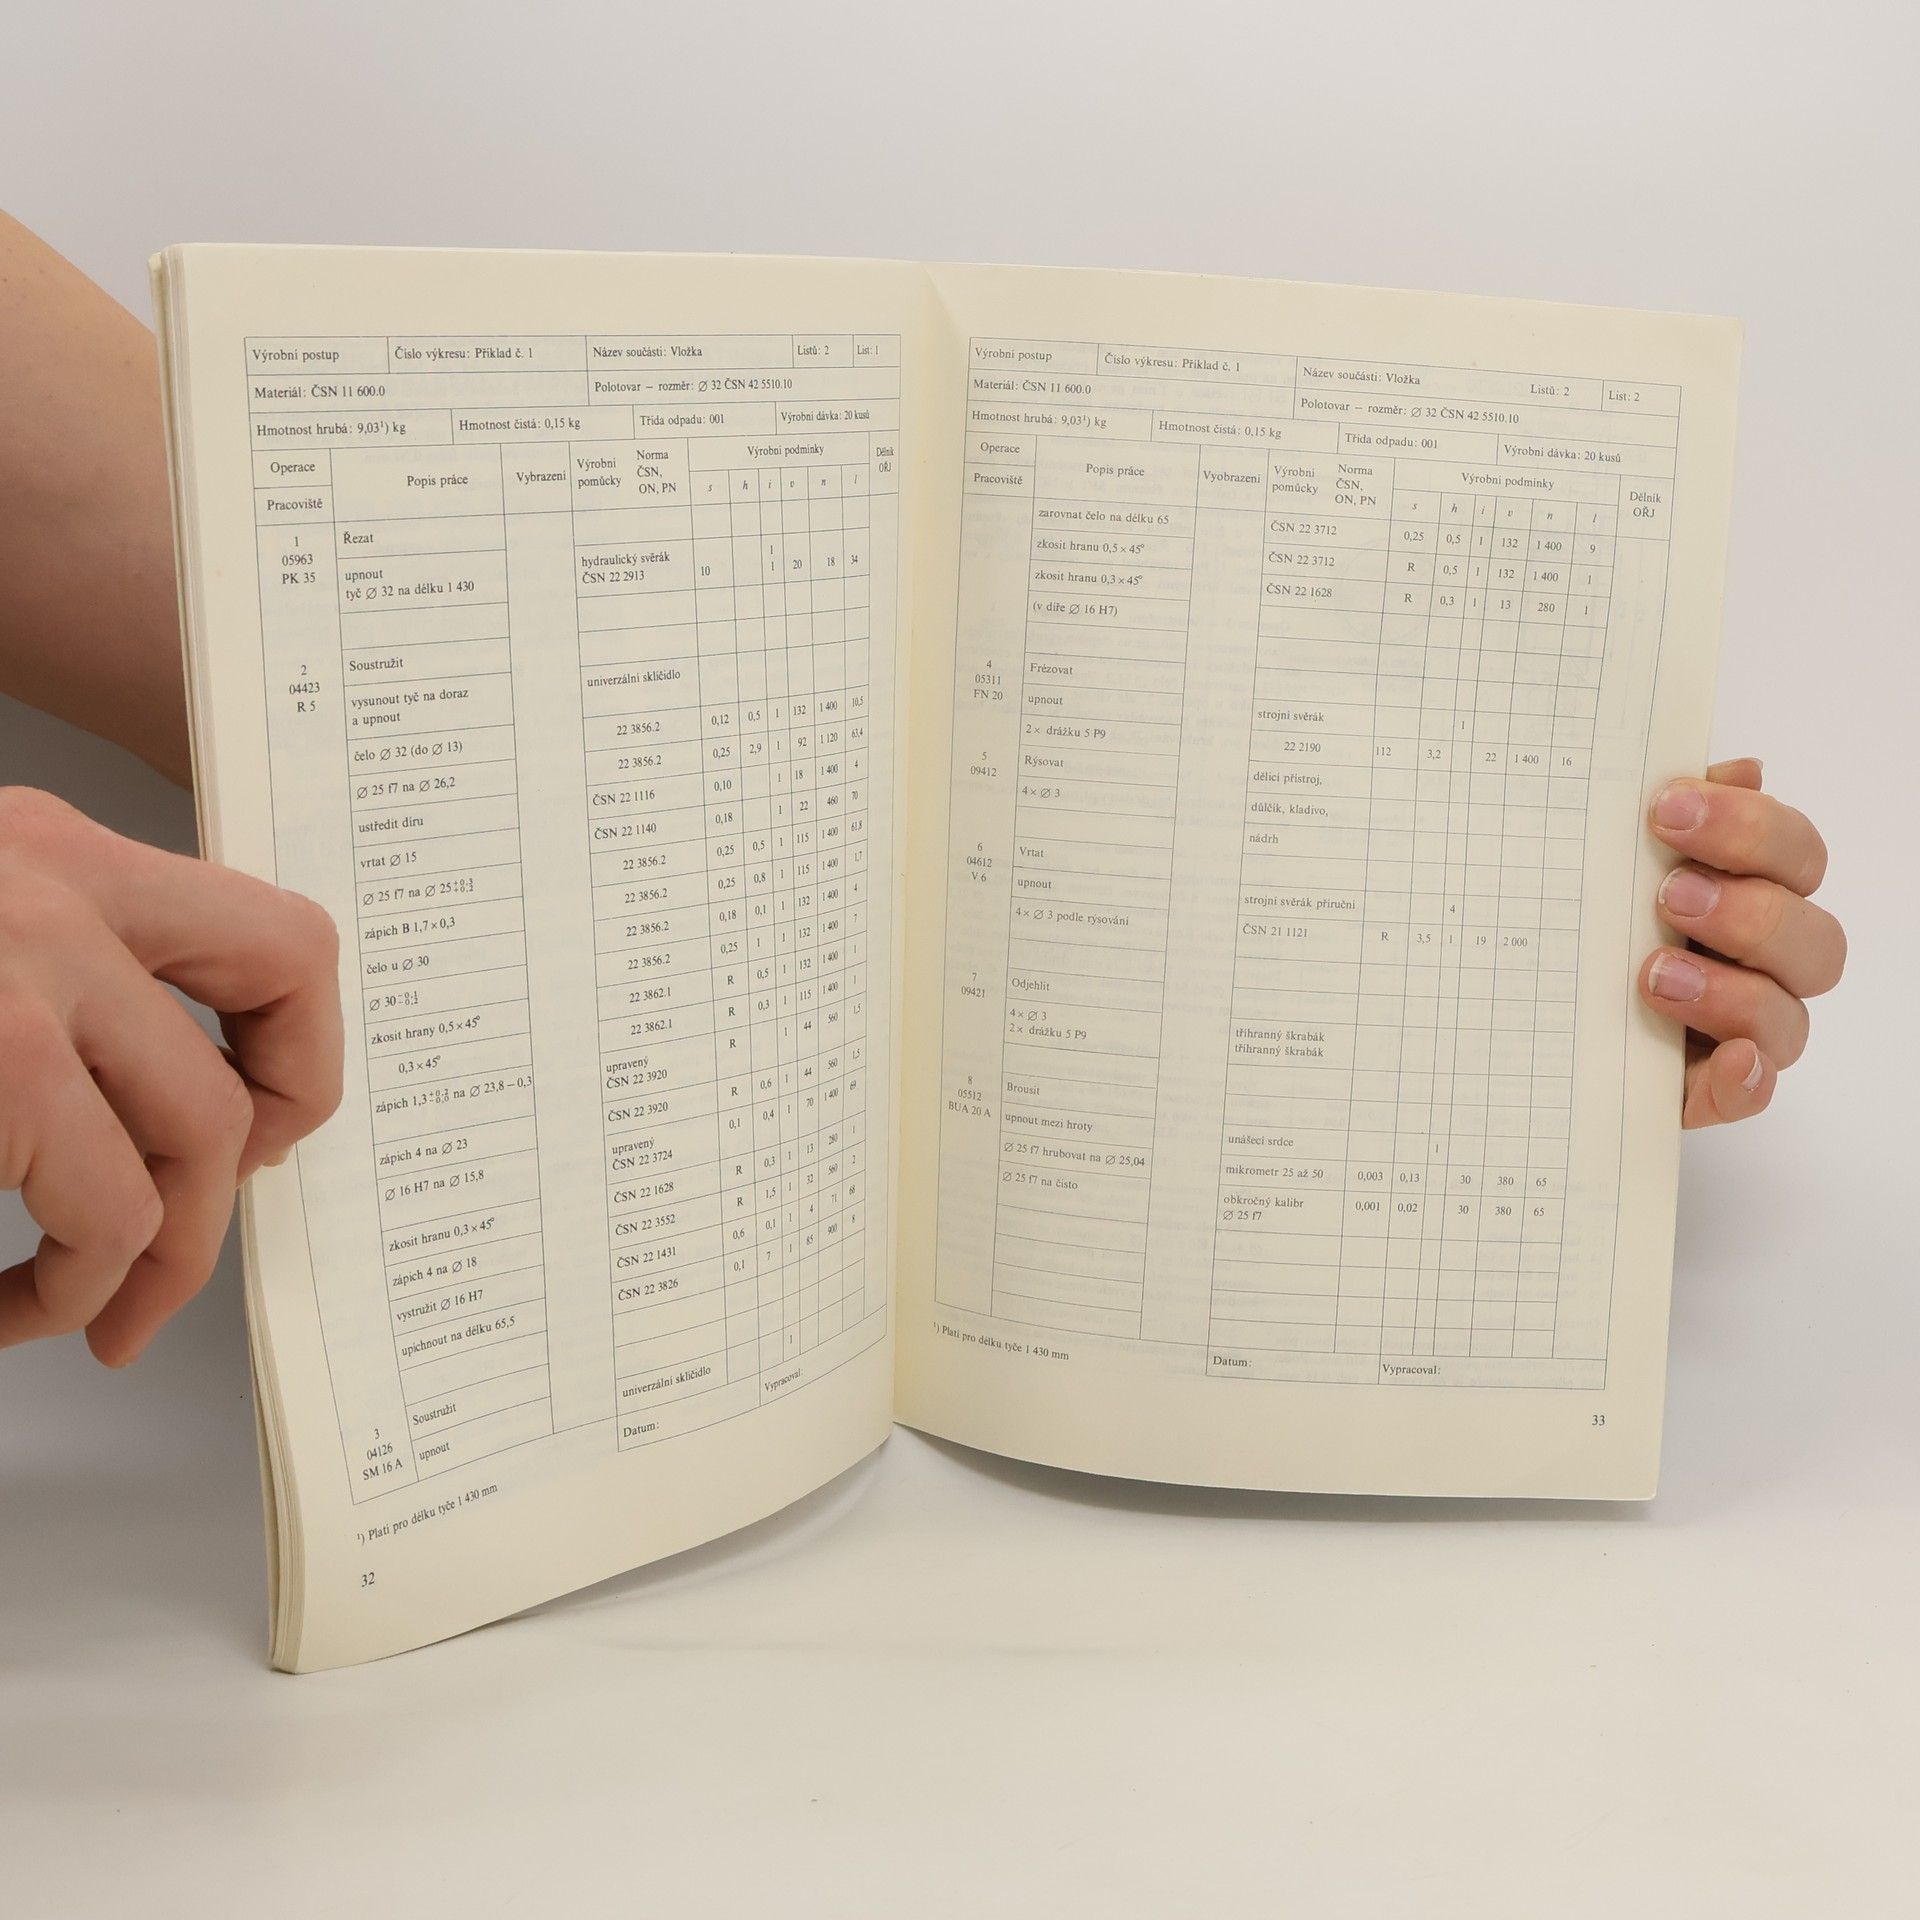 Výrobní postup Číslo výkresu: Příklad č. 1 Název součásti: Vložka Listů: 2 List: 1
Materiál: ČSN 11 600.0 Polotovar – rozměr: ∅ 32 ČSN 42 5510.10
Hmotnost hrubá: 9,03¹) kg Hmotnost čistá: 0,15 kg Třída odpadu: 001 Výrobní dávka: 20 kusů
Operace Popis práce Vybrazení Výrobní pomůcky Norma ČSN, ON, PN Výrobní podmínky Dělník OŘJ
Pracoviště s h i v n l
1 Řezat
05963
PK 35 upnout hydraulický svěrák 1
tyč ∅ 32 na délku 1 430 ČSN 22 2913 10 1 20 18 34
2 Soustružit
04423 univerzální sklíčidlo
R 5 vysunout tyč na doraz
a upnout
čelo ∅ 32 (do ∅ 13) 22 3856.2 0,12 0,5 1 132 1 400 10,5
∅ 25 f7 na ∅ 26,2 22 3856.2 0,25 2,9 1 92 1 120 63,4
ustředit díru ČSN 22 1116 0,10 1 18 1 400 4
vrtat ∅ 15 ČSN 22 1140 0,18 1 22 460 70
∅ 25 f7 na ∅ 25 +0,3 +0,2 22 3856.2 0,25 0,5 1 115 1 400 61,8
zápich B 1,7 × 0,3 22 3856.2 0,25 0,8 1 115 1 400 1,7
čelo u ∅ 30 22 3856.2 0,18 0,1 1 132 1 400 4
∅ 30 −0,1 −0,2 22 3856.2 0,25 1 1 132 1 400 7
zkosit hrany 0,5 × 45° 22 3862.1 R 0,5 1 132 1 400 1
0,3 × 45° 22 3862.1 R 0,3 1 115 1 400 1
zápich 1,3 na ∅ 23,8 – 0,3 upravený ČSN 22 3920 R 1 44 560 1,5
zápich 4 na ∅ 23 ČSN 22 3920 R 0,6 1 44 560 1,5
∅ 16 H7 na ∅ 15,8 upravený ČSN 22 3724 0,1 0,4 1 70 1 400 69
zkosit hranu 0,3 × 45° ČSN 22 1628 R 0,3 1 13 280 1
zápich 4 na ∅ 18 ČSN 22 3552 R 1,5 1 32 560 2
vystružit ∅ 16 H7 ČSN 22 1431 0,6 0,1 1 4 71 68
upichnout na délku 65,5 ČSN 22 3826 0,1 7 1 85 900 8
3 Soustružit
04126
SM 16 A upnout univerzální sklíčidlo 1
Datum: Vypracoval:
¹) Platí pro délku tyče 1 430 mm
32
Výrobní postup Číslo výkresu: Příklad č. 1 Název součásti: Vložka Listů: 2 List: 2
Materiál: ČSN 11 600.0 Polotovar – rozměr: ∅ 32 ČSN 42 5510.10
Hmotnost hrubá: 9,03¹) kg Hmotnost čistá: 0,15 kg Třída odpadu: 001 Výrobní dávka: 20 kusů
Operace Popis práce Vyobrazení Výrobní pomůcky Norma ČSN, ON, PN Výrobní podmínky Dělník OŘJ
Pracoviště s h i v n l
zarovnat čelo na délku 65 ČSN 22 3712 0,25 0,5 1 132 1 400 9
zkosit hranu 0,5 × 45° ČSN 22 3712 R 0,5 1 132 1 400 1
zkosit hranu 0,3 × 45° ČSN 22 1628 R 0,3 1 13 280 1
(v díře ∅ 16 H7)
4 Frézovat
05311
FN 20 upnout strojní svěrák 1
2 × drážku 5 P9 22 2190 112 3,2 22 1 400 16
5 Rýsovat dělicí přístroj,
09412 4 × ∅ 3 důlčík, kladivo,
nádrh
6 Vrtat
04612
V 6 upnout strojní svěrák příruční 4
4 × ∅ 3 podle rýsování ČSN 21 1121 R 3,5 1 19 2 000
7 Odjehlit
09421
4 × ∅ 3 tříhranný škrabák
2 × drážku 5 P9 tříhranný škrabák
8 Brousit
05512
BUA 20 A upnout mezi hroty unášecí srdce 1
∅ 25 f7 hrubovat na ∅ 25,04 mikrometr 25 až 50 0,003 0,13 30 380 65
∅ 25 f7 na čisto obkročný kalibr ∅ 25 f7 0,001 0,02 30 380 65
¹) Platí pro délku tyče 1 430 mm
Datum: Vypracoval:
33